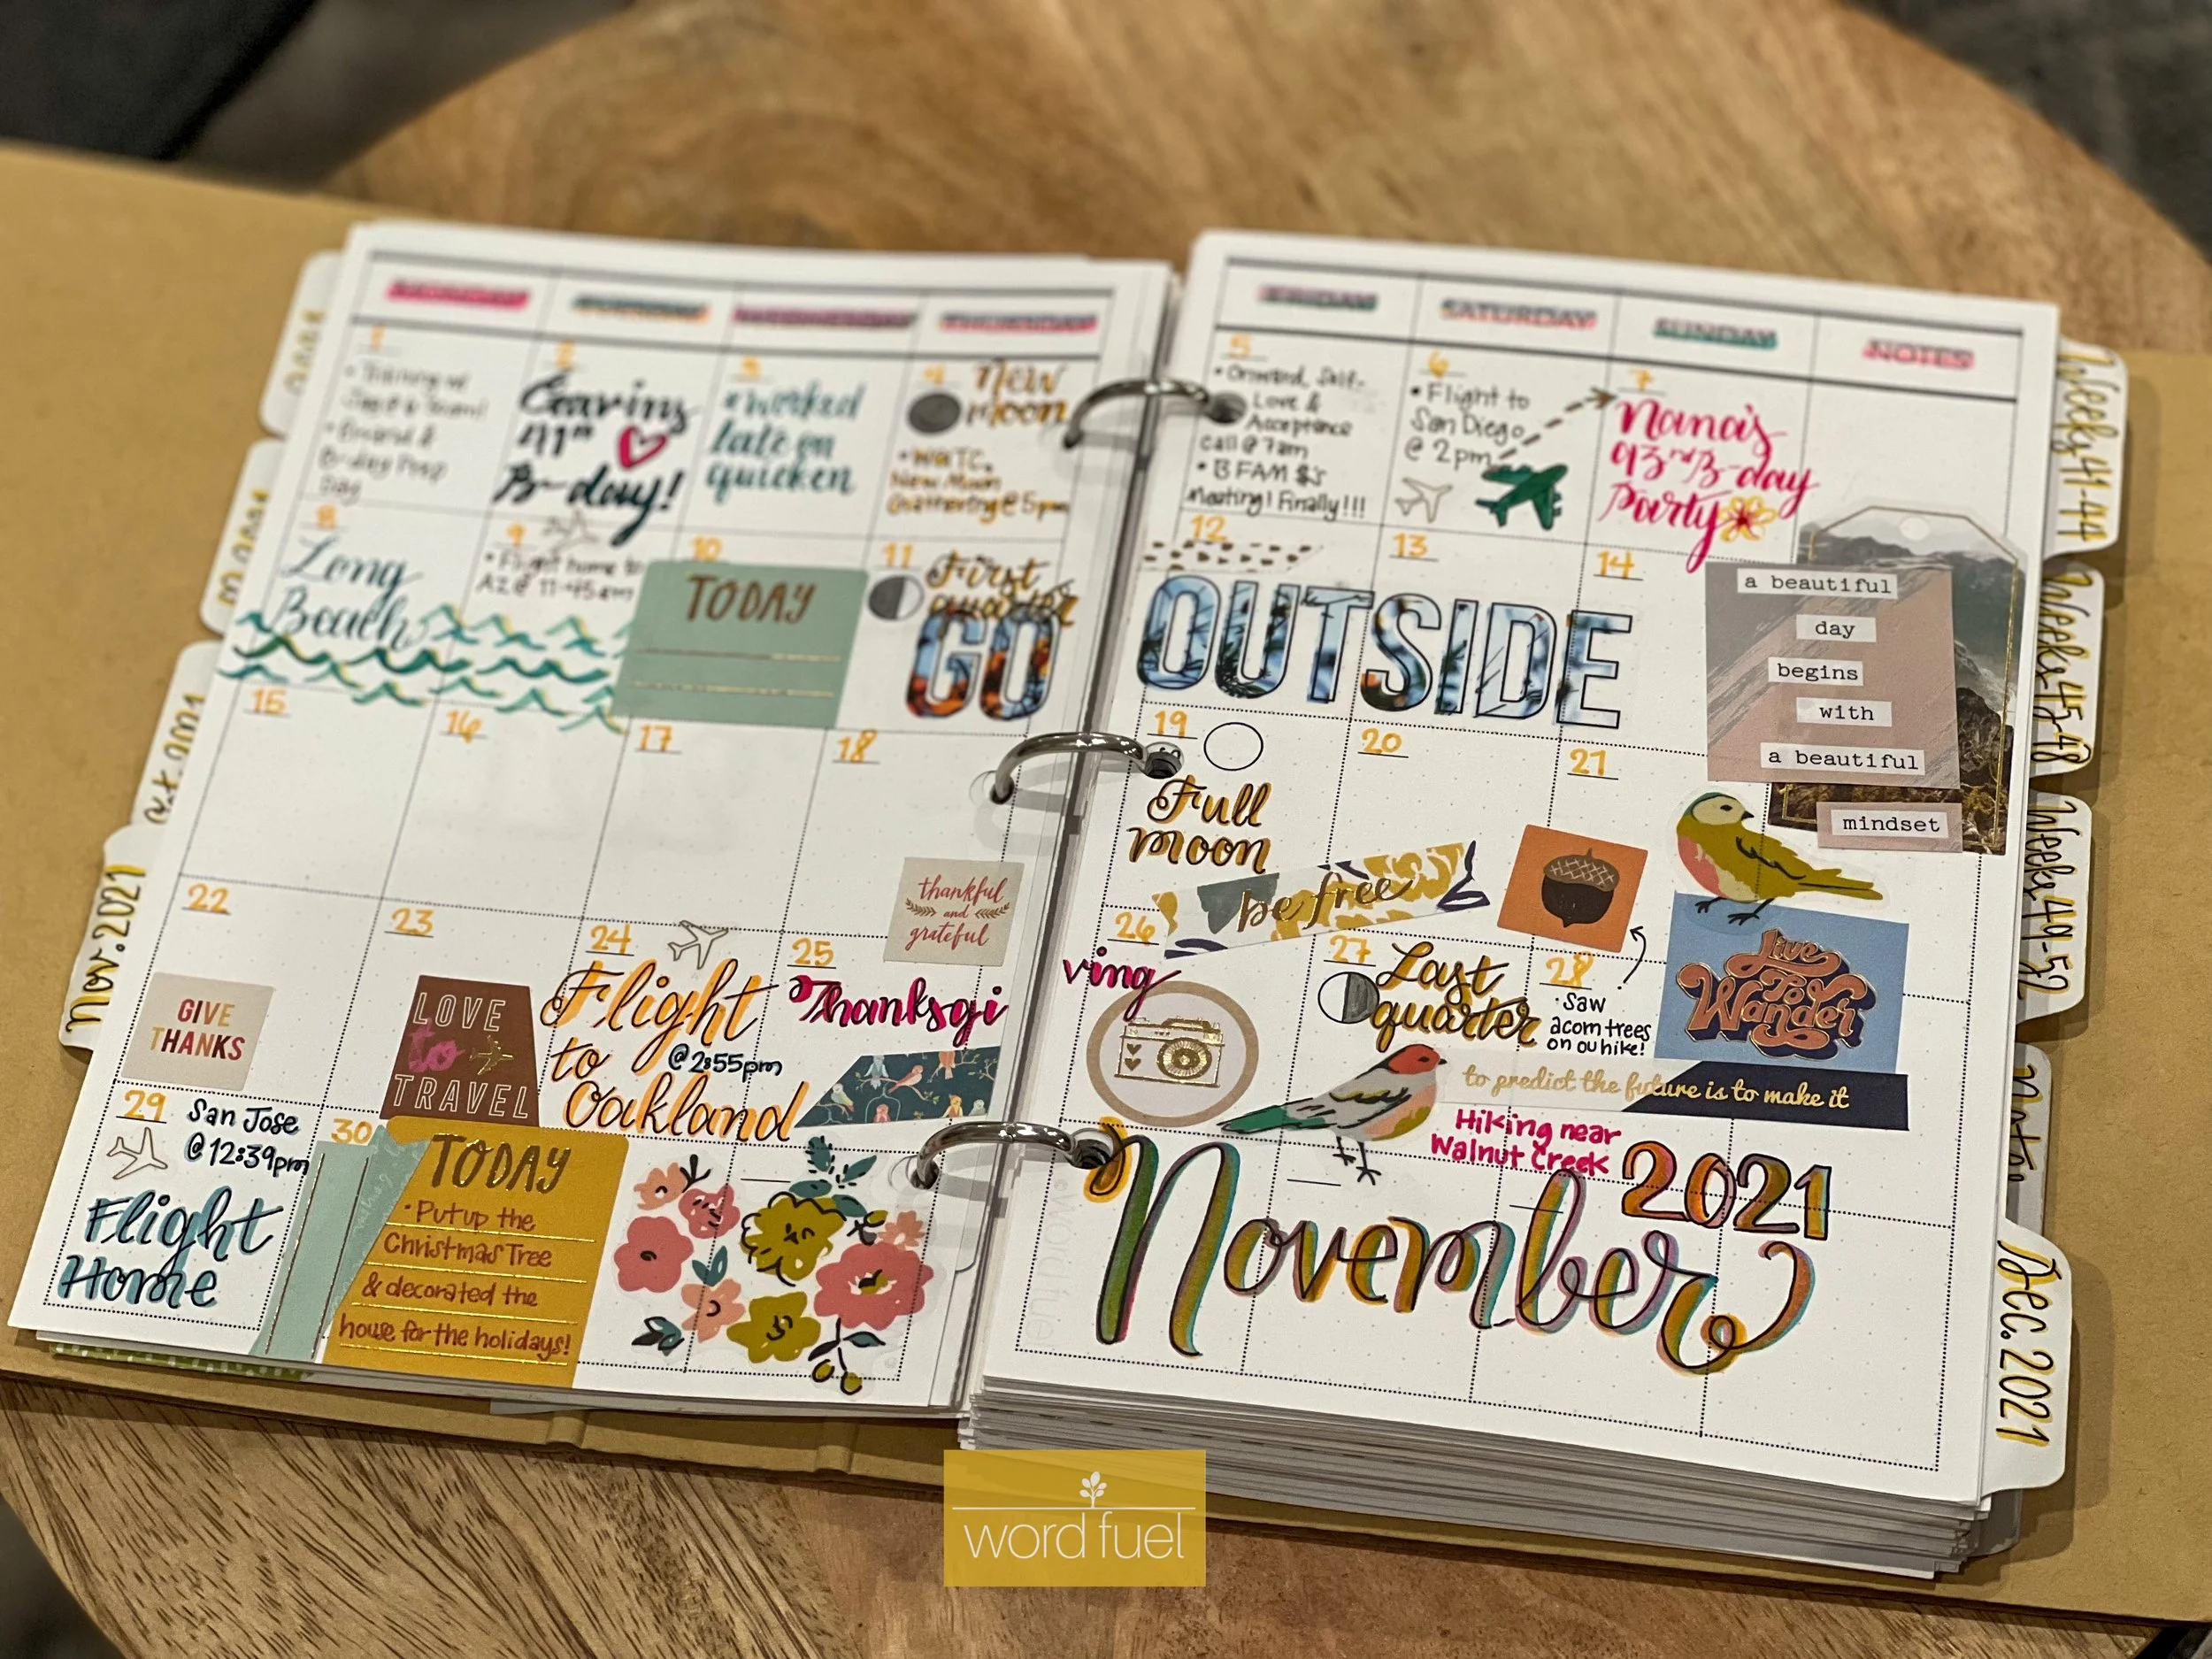 MONDAY
TUESDAY
WEDNESDAY
THURSDAY
1
B-day Prep
Day
2
41st
B-day!
3
worked
late on
quicken
4
New
Moon
New Moon
Gathering @ 5pm
8
Long
Beach
9
• Flight home to
AZ @ 11:45am
10
TODAY
11
First
quarter
GO
15
16
17
18
thankful
and
grateful
22
GIVE
THANKS
23
LOVE
to
TRAVEL
24
Flight
to
@ 2:55pm
Oakland
25
Thanksgi
29
San Jose
@ 12:39pm
Flight
Home
30
TODAY
• Put up the
Christmas Tree
& decorated the
house for the holidays!
FRIDAY
SATURDAY
SUNDAY
NOTES
5
• Onward, Self-
Love &
Acceptance
call @ 7am
• B FAM $'s
Meeting! Finally!!!
6
• Flight to
San Diego
@ 2pm
7
Nana's
93rd B-day
Party
12
13
14
OUTSIDE
a beautiful
day
begins
with
a beautiful
mindset
19
Full
moon
20
21
be free
26
ving
27
Last
quarter
28
• Saw
acorn trees
on ou hike!
Live
To
Wander
to predict the future is to make it
Hiking near
Walnut Creek
2021
November
Nov. 2021
Weeks 41-44
Weeks 45-48
Weeks 49-52
Notes
Dec. 2021
word fuel